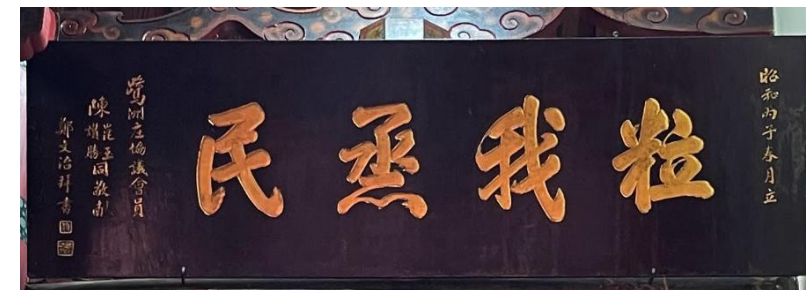 昭和丙子春月立
粒我烝民
鷺洲庄協議會員
陳
同敬
鄭文治拜書